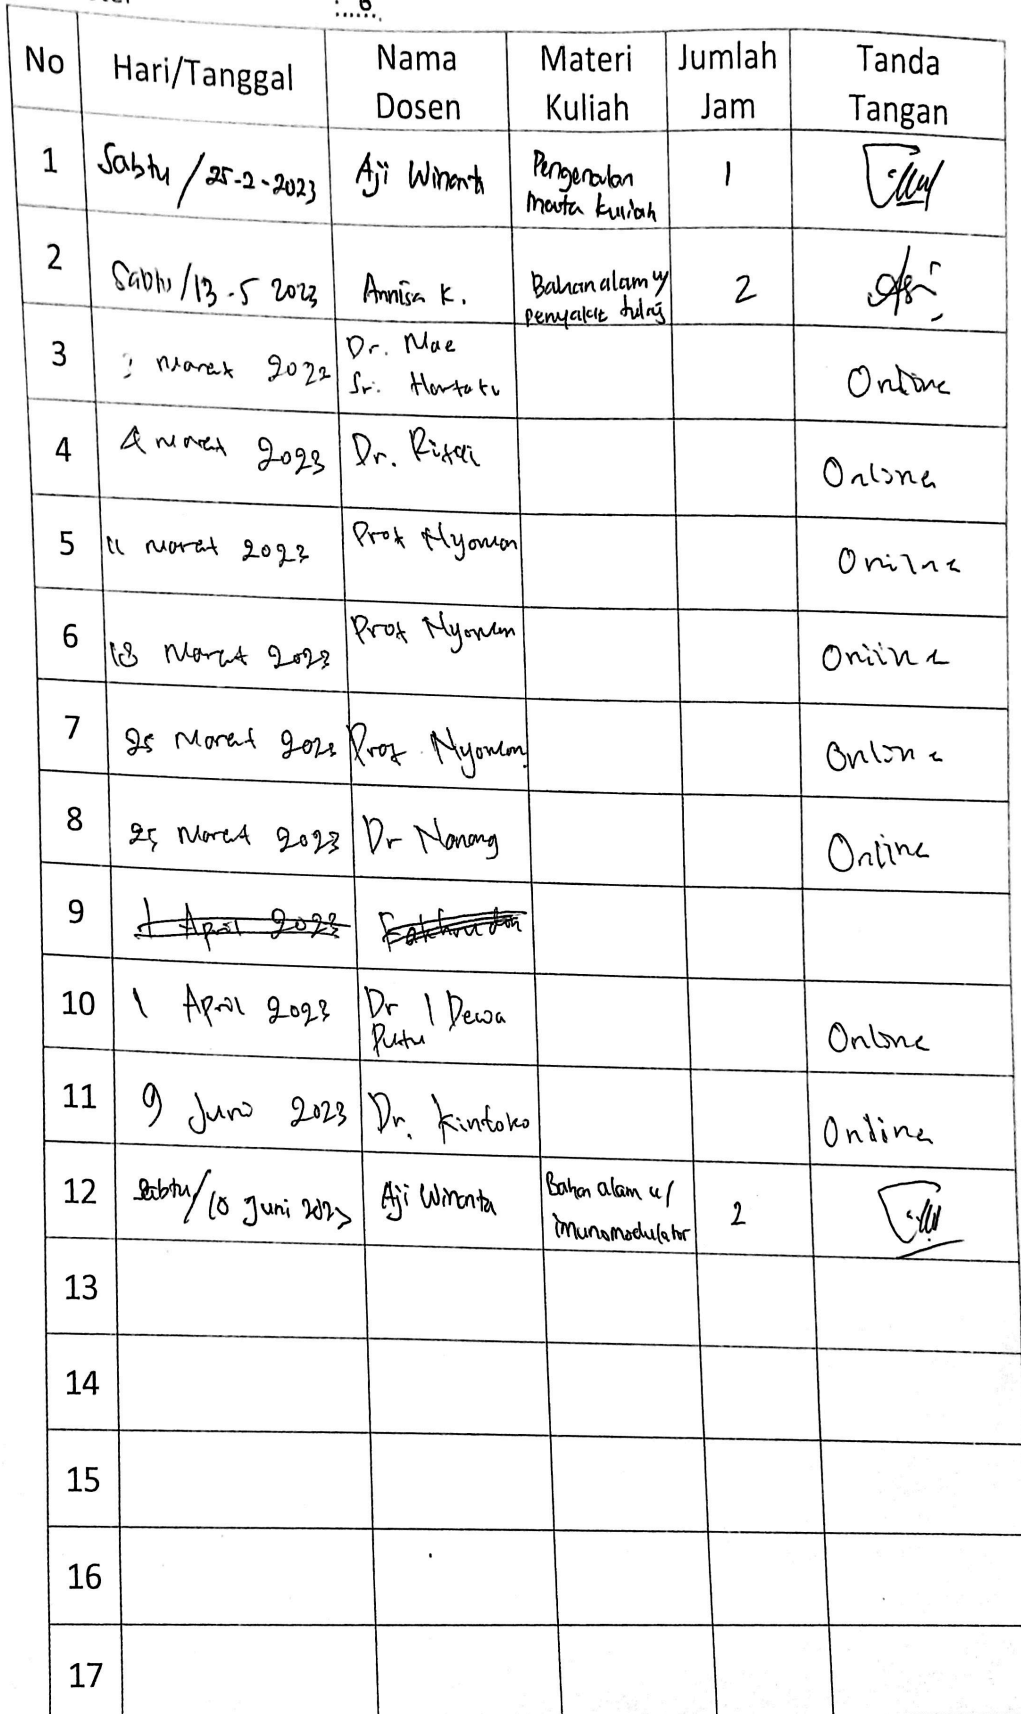 : 6
No Hari/Tanggal Nama Dosen Materi Kuliah Jumlah Jam Tanda Tangan
1 Sabtu / 25-2-2023 Aji Winanta Pengenalan mata kuliah 1
2 Sabtu / 13-5 2023 Annisa K. Bahan alam u/ penyakit tulang 2
3 Maret 2022 Dr. Mae Sri. Hartati Online
4 4 Maret 2023 Dr. Rifai Online
5 11 Maret 2023 Prof Nyoman Online
6 18 Maret 2023 Prof Nyoman Online
7 25 Maret 2023 Prof Nyoman Online
8 25 Maret 2023 Dr Nanang Online
9 1 April 2023 Fakhrudin
10 1 April 2023 Dr I Dewa Putu Online
11 9 Juni 2023 Dr. Kintoko Online
12 Sabtu / 10 Juni 2023 Aji Winanta Bahan alam u/ imunomodulator 2
13
14
15
16
17